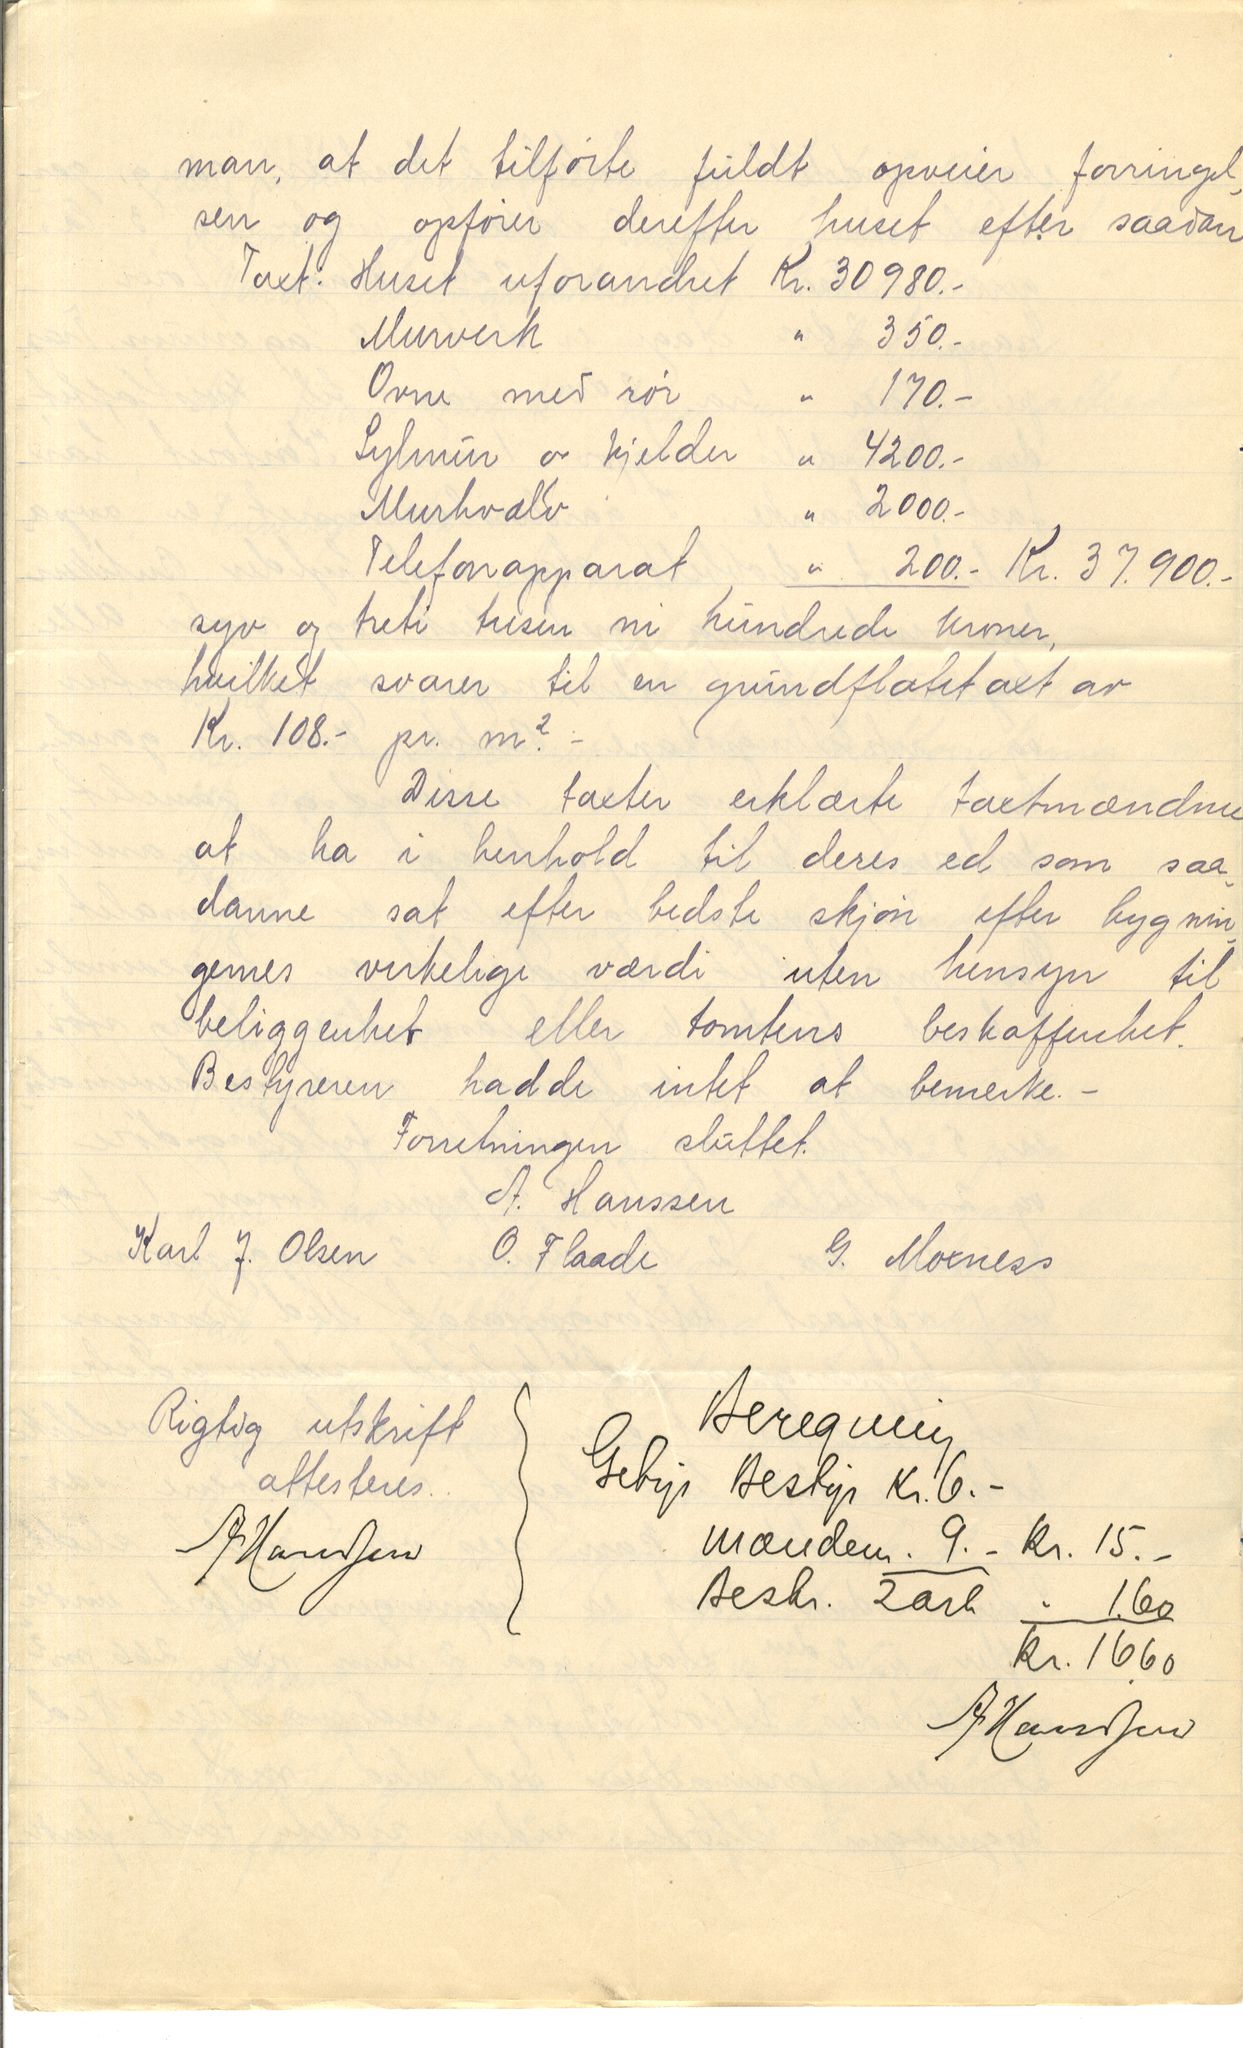 man, at det tilførte fuldt opveier forringel-
sen og opfører derefter huset efter saadan
Taxt: Huset uforandret Kr. 30980.-
Murverk " 350.-
Ovne med rør " 170.-
Sylmur o kjelder " 4200.-
Murhvælv " 2000.-
Telefonapparat " 200.- Kr. 37.900.-
syv og treti tusen ni hundrede kroner,
hvilket svarer til en grundflatetaxt av
Kr. 108.- pr. m². -
Disse taxter erklærte taxtmændne
at ha i henhold til deres ed som saa-
danne sat efter bedste skjøn efter bygnin-
gernes virkelige værdi uten hensyn til
beliggenhet eller tomtens beskaffenhet.
Bestyreren hadde intet at bemerke. -
Forretningen sluttet.
A. Hanssen
Karl J. Olsen O. Flaade G. Moxness
Rigtig utskrift
attesteres.
A Hanssen
Beregning
Gebyr Bestyr Kr. 6.-
mændem. 9.- Kr. 15.-
Beskr. 2 ark " 1.60
Kr. 16.60
A Hanssen